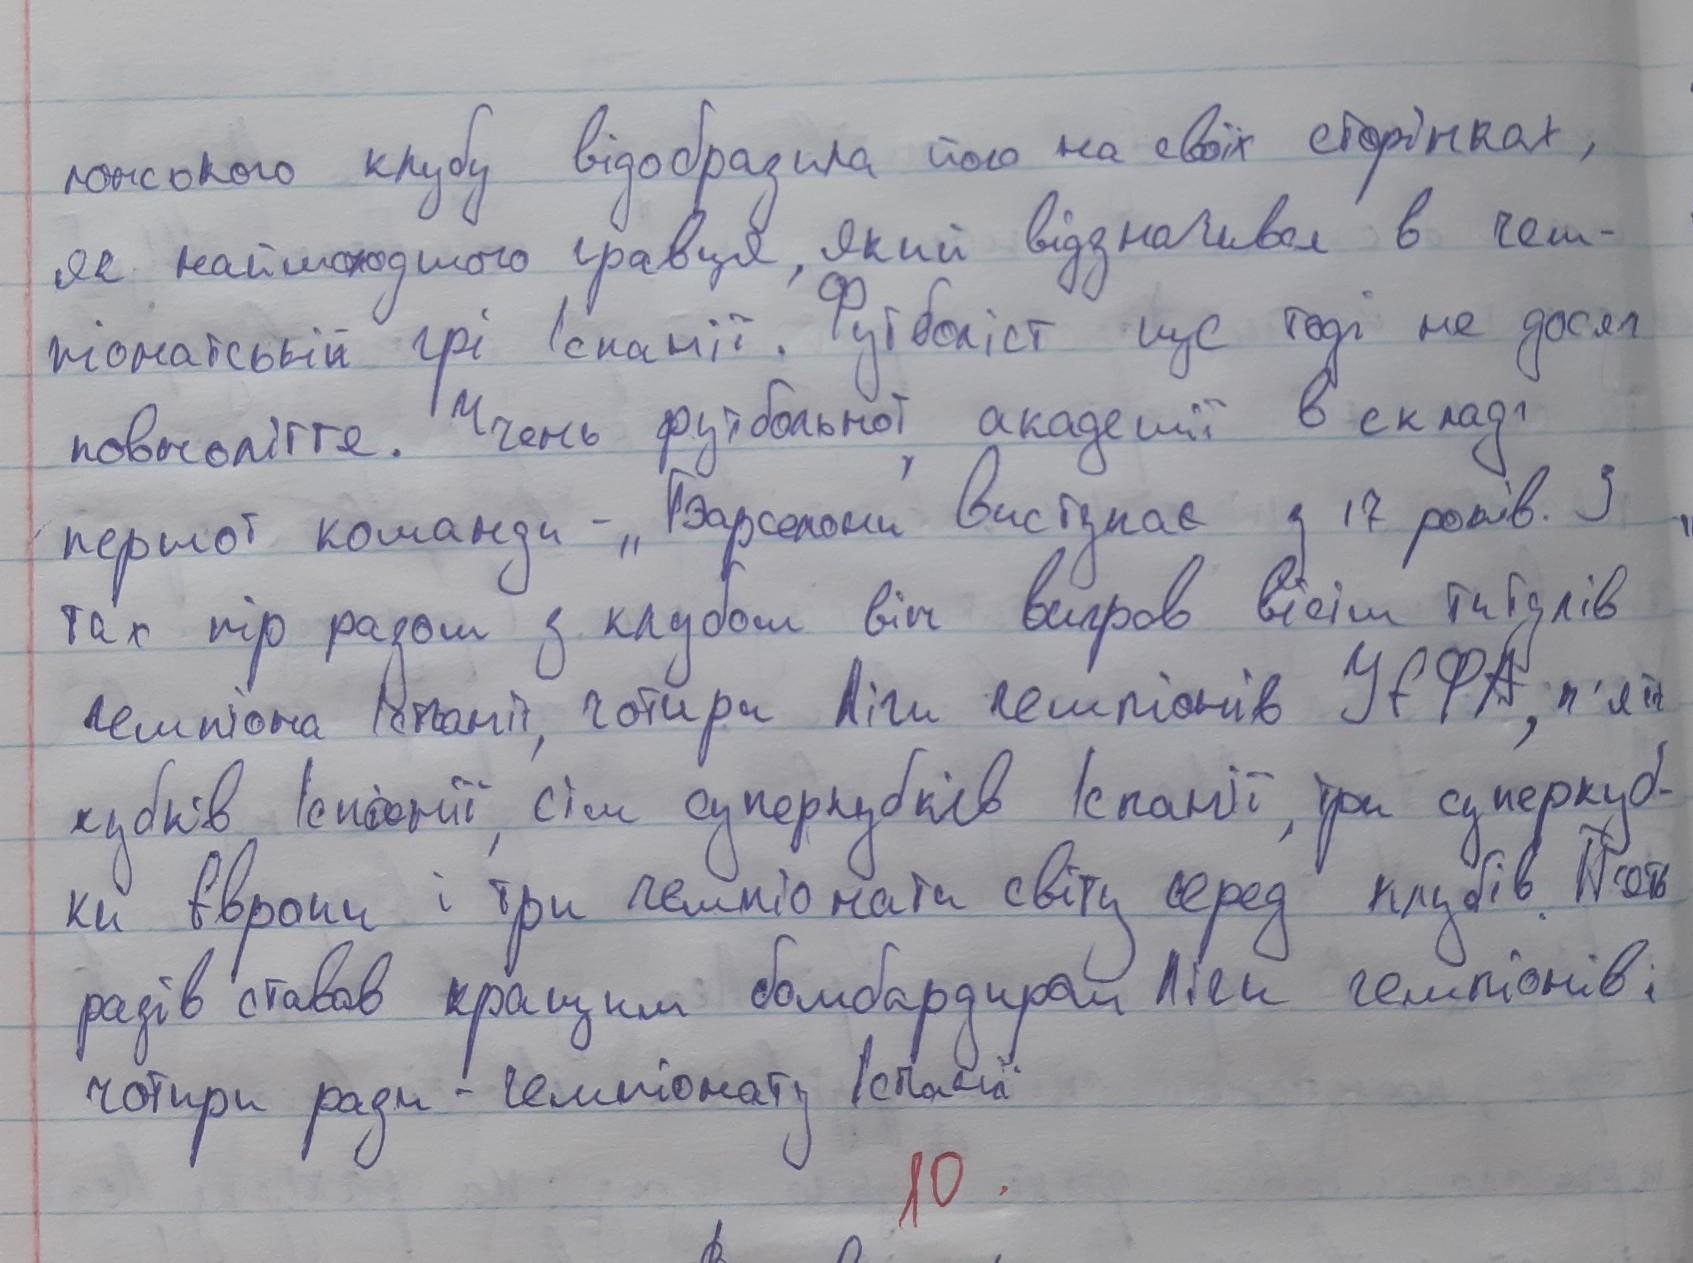 лонського клубу відобразила його на своїх сторінках,
як наймолодшого гравця, який відзначився в чем-
піонатській грі Іспанії. Футболіст ще тоді не досяг
повноліття. Учень футбольної академії в складі
першої команди - „Барселони" виступає з 17 років. З
тах пір разом з клубом він виграв вісім титулів
чемпіона Іспанії, чотири Ліги чемпіонів УЄФА, п'ять
кубків Іспанії, сім суперкубків Іспанії, три суперкуб-
ки Європи і три чемпіонати світу серед клубів.
разів ставав кращим бомбардиром Ліги чемпіонів і
чотири рази - чемпіонату Іспанії
10.